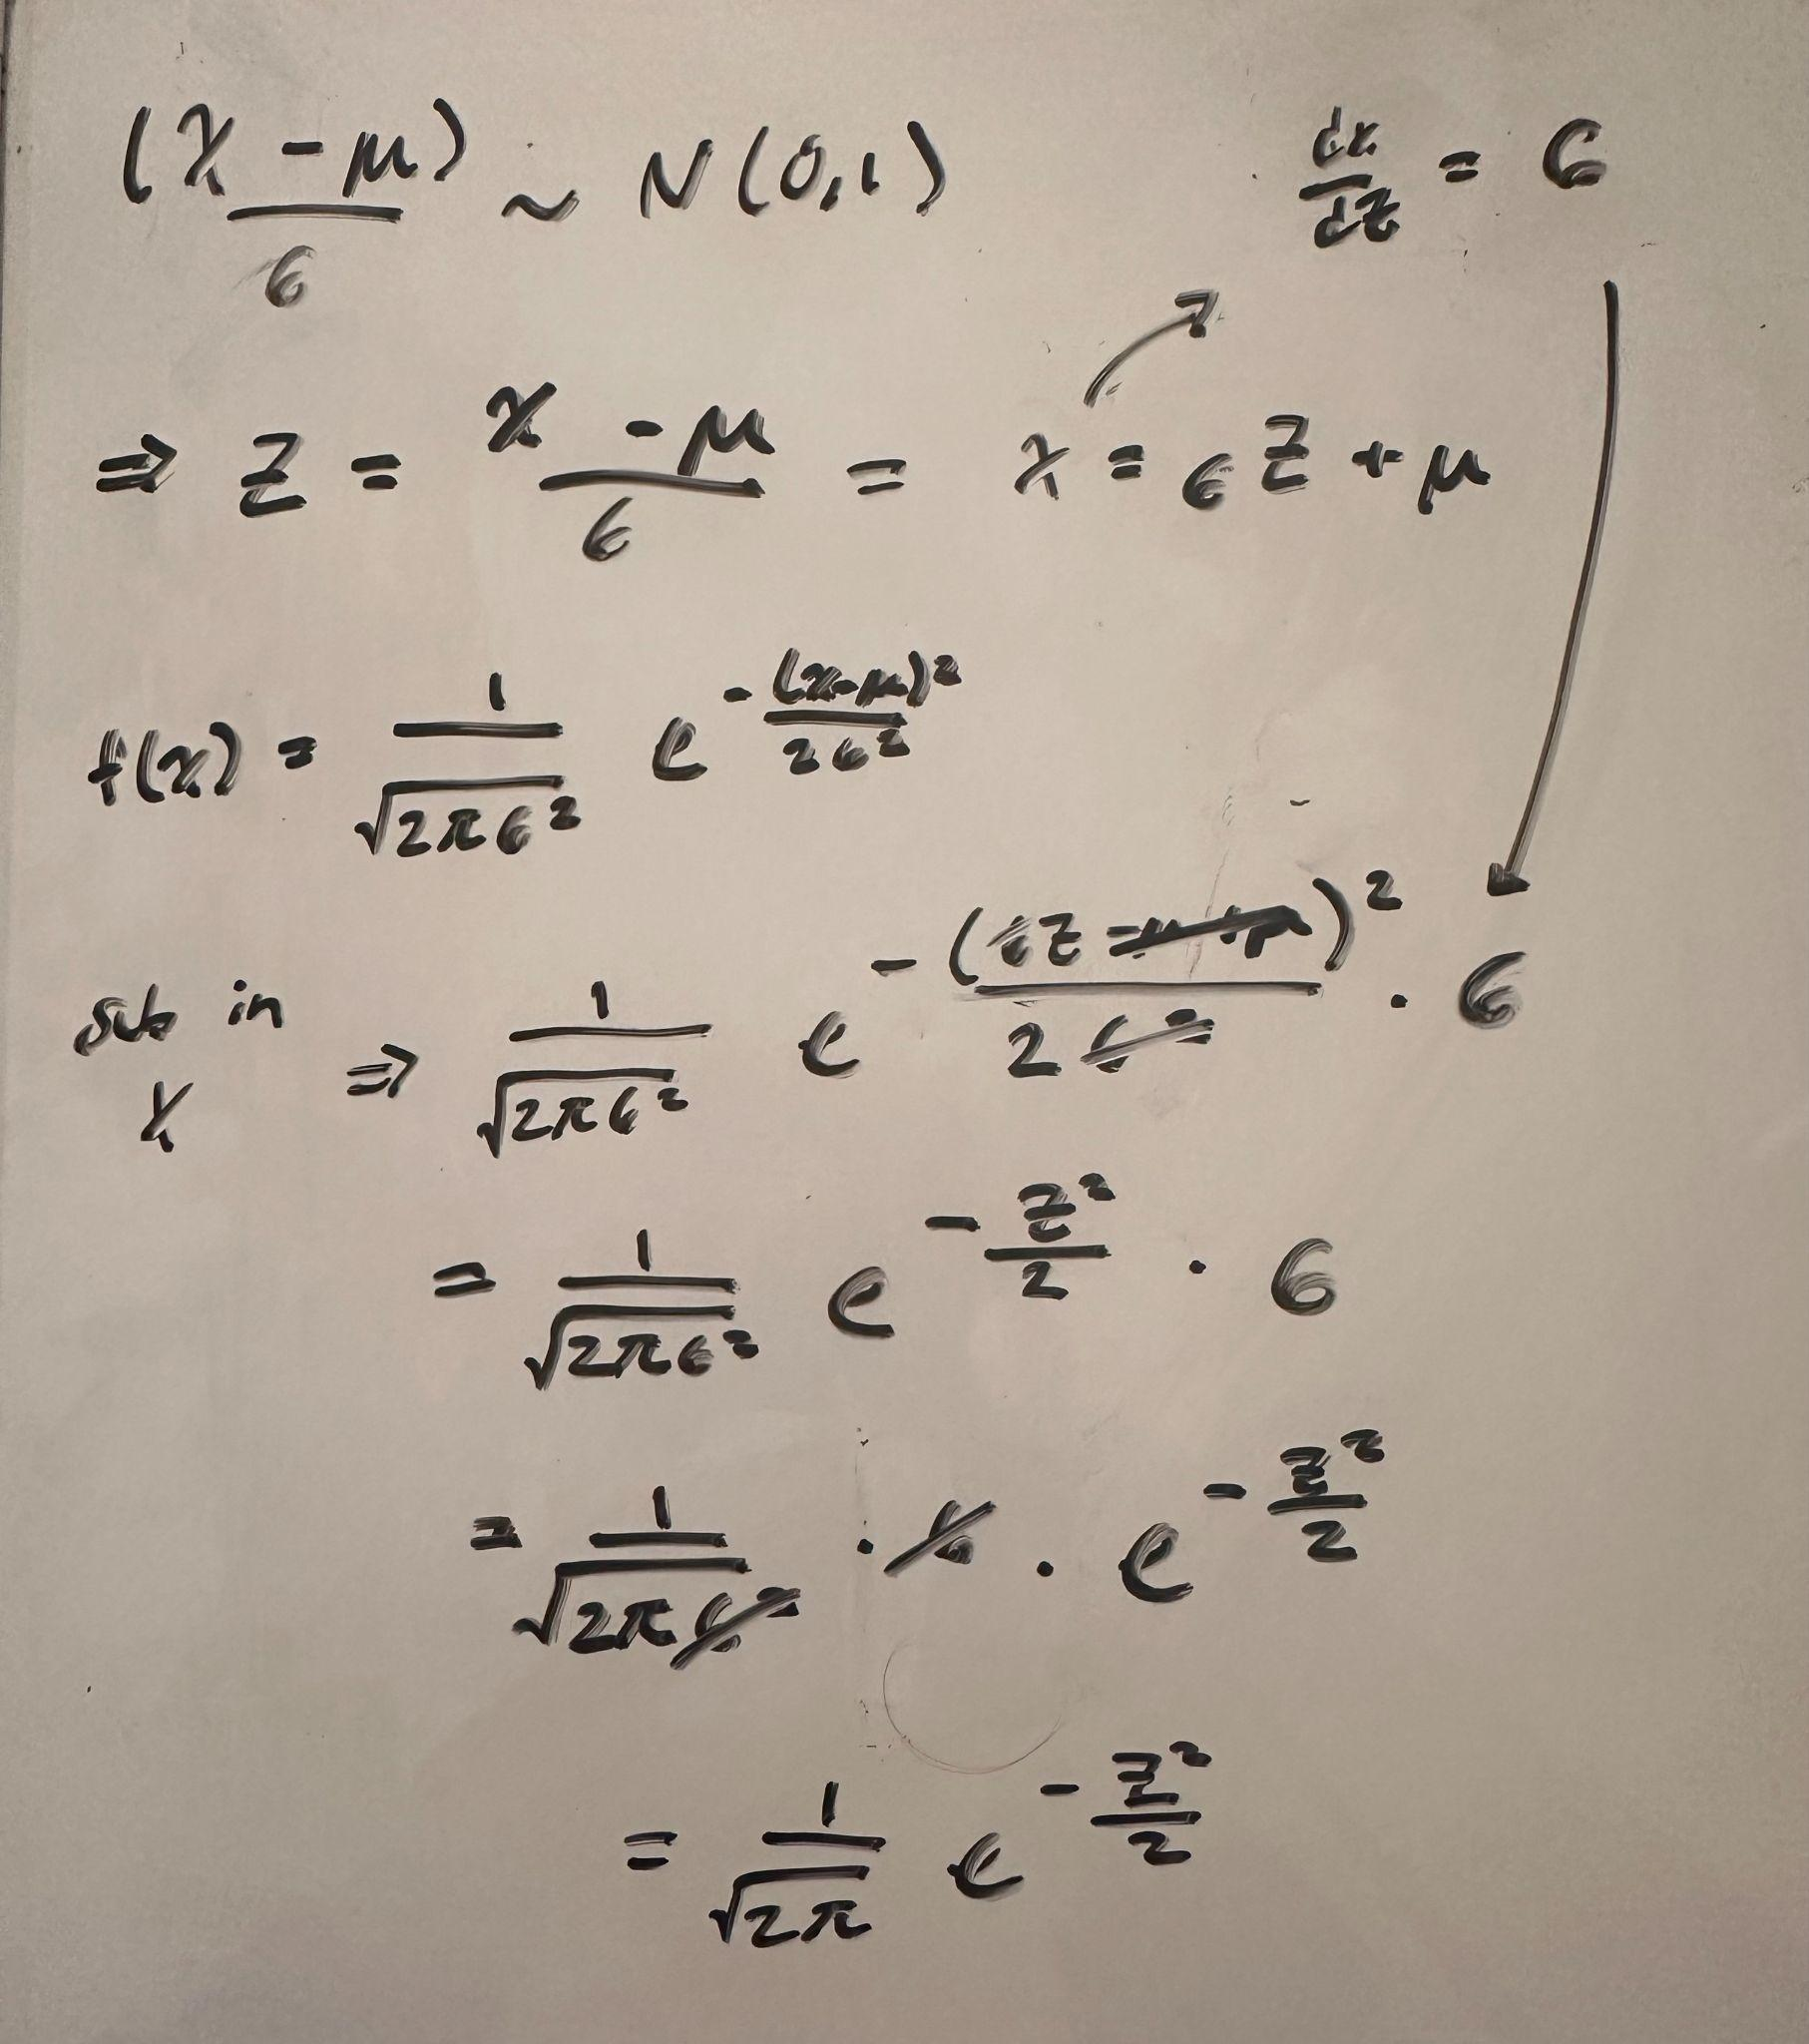 (x - μ) / σ ~ N(0,1)    dx/dz = σ
⇒ Z = x - μ / σ = x = σZ + μ
f(x) = 1/√2πσ² e^-(x-μ)²/2σ²
sub in x ⇒ 1/√2πσ² e^-(σZ - μ + μ)²/2σ² · σ
= 1/√2πσ² e^-Z²/2 · σ
= 1/√2πσ² · σ · e^-Z²/2
= 1/√2π e^-Z²/2